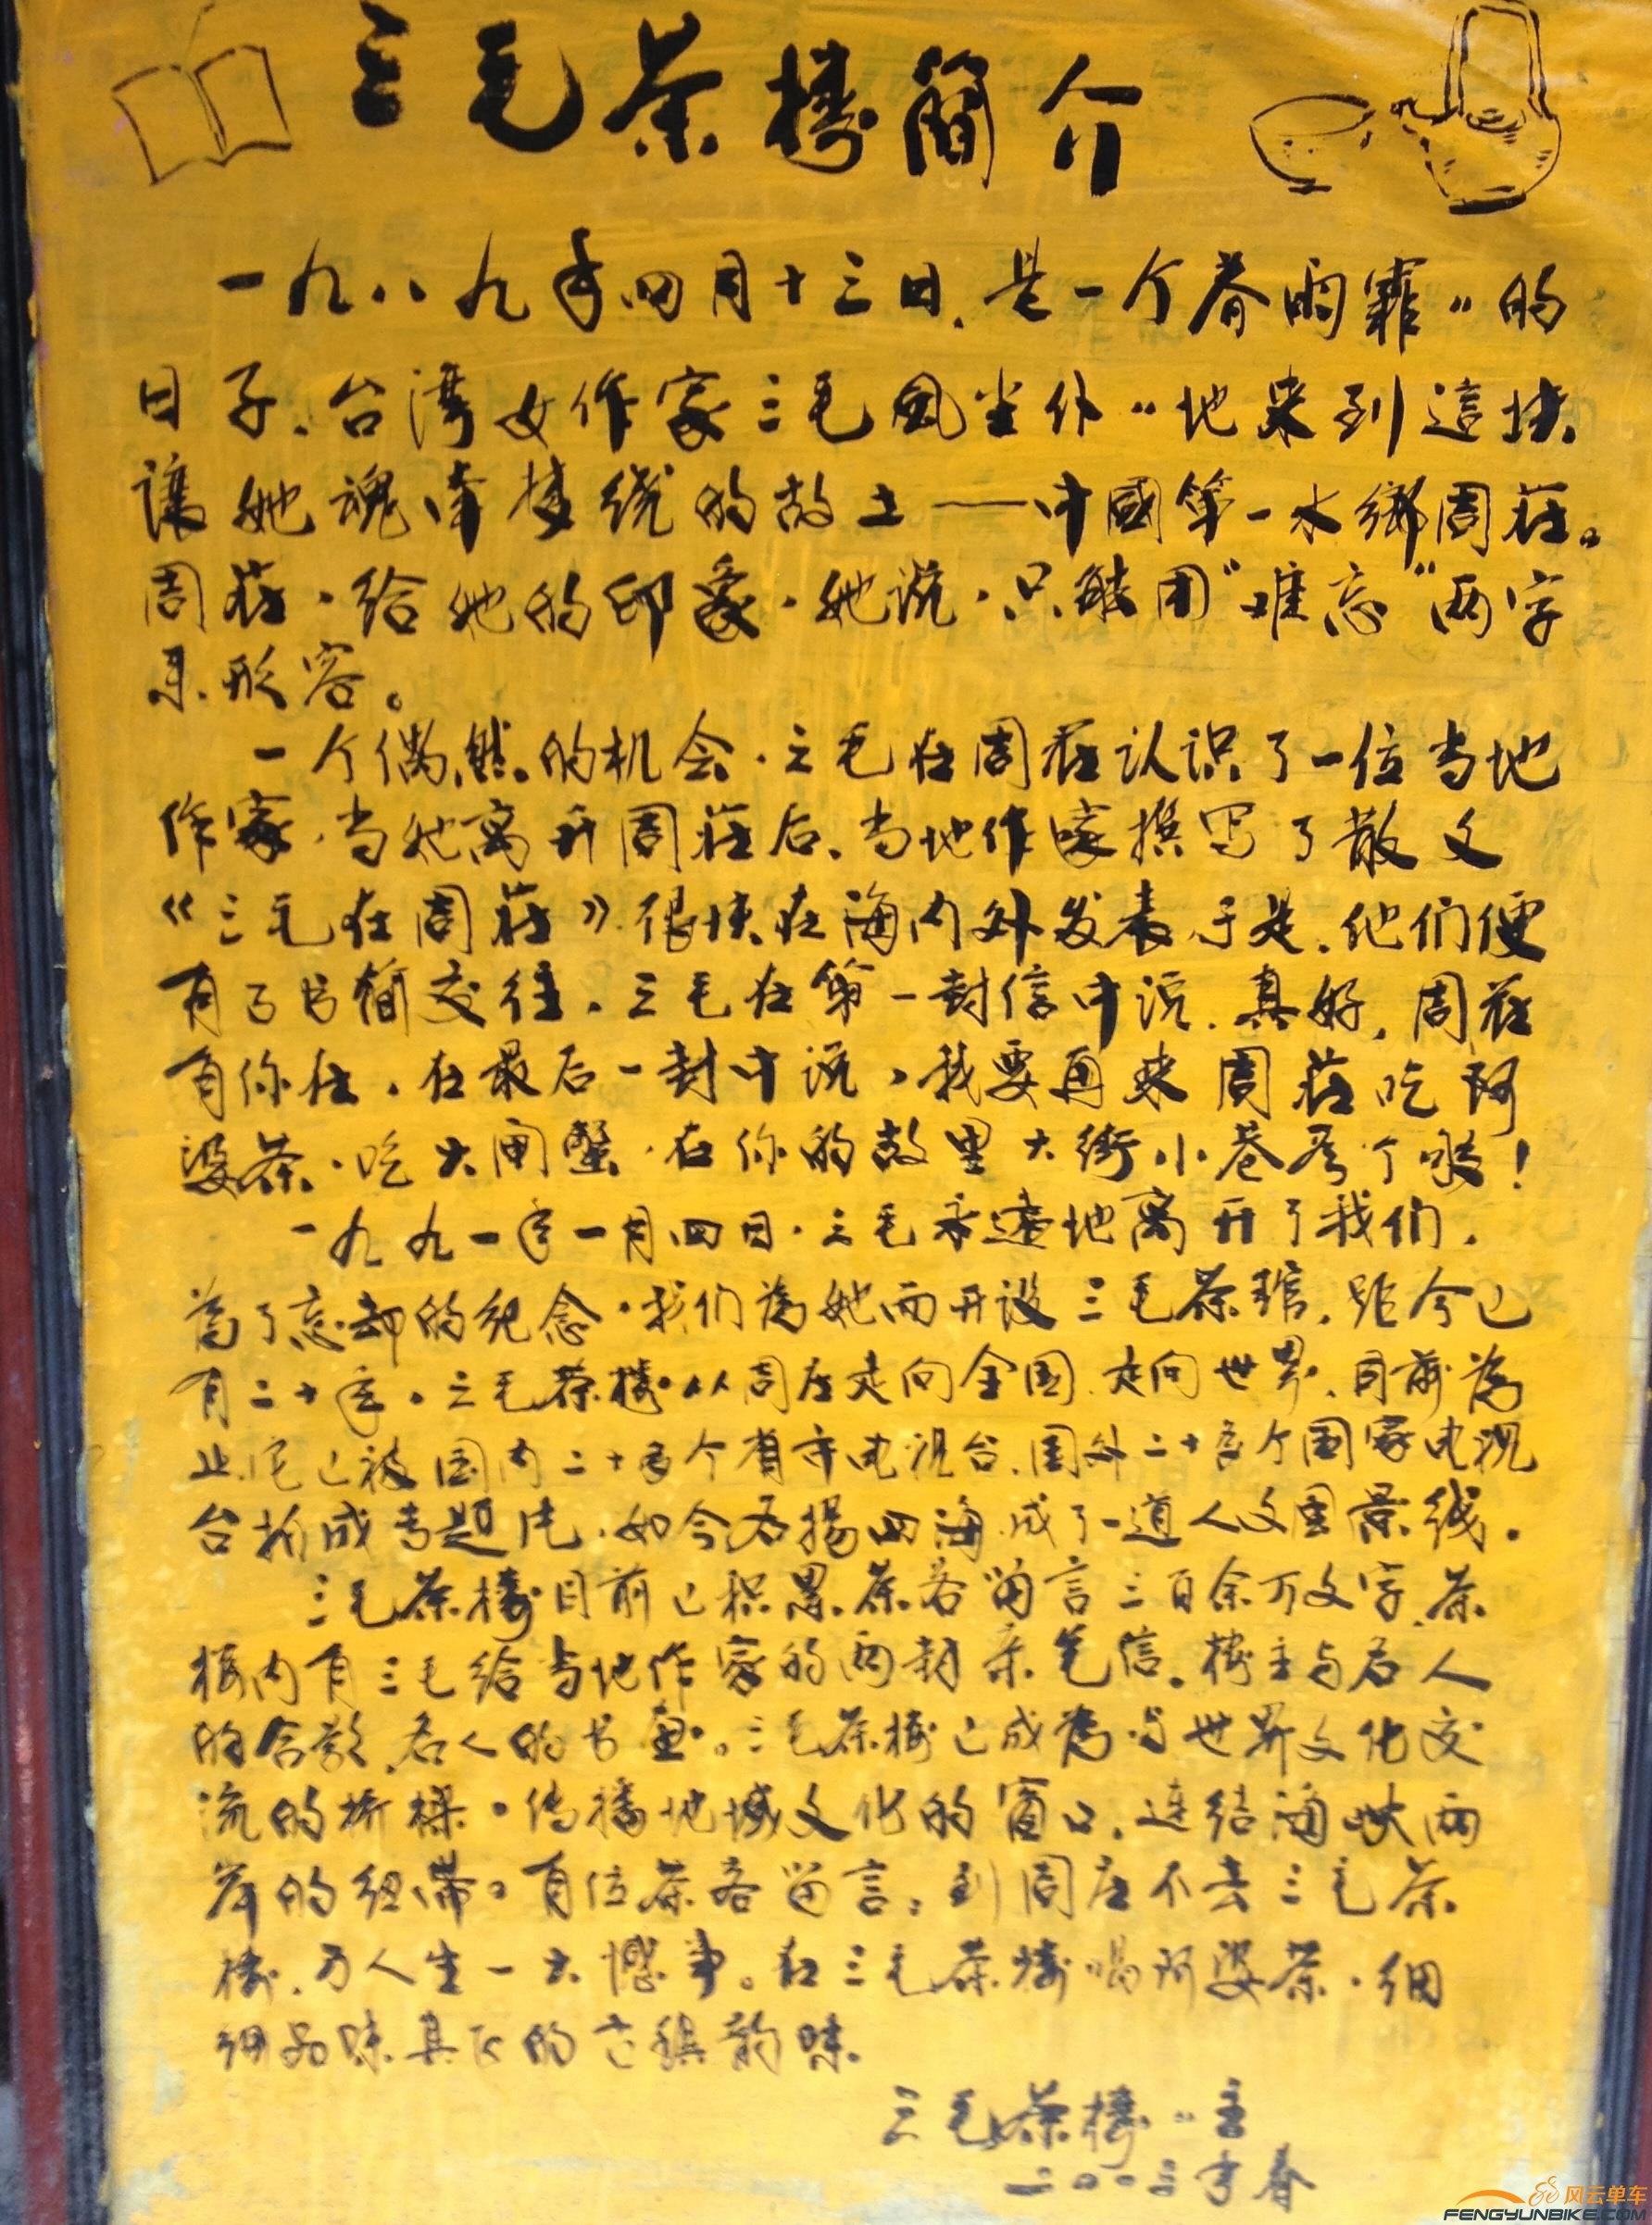 三毛茶樓簡介
一九八九年四月十三日，是一个春雨霏〃的
日子，台湾女作家三毛风尘仆〃地来到這块
讓她魂牵梦绕的故土——中國第一水鄉周莊。
周莊，给她的印象，她说，只能用“难忘”两字
来形容。
一个偶然的机会，三毛在周莊认识了一位当地
作家，当她离开周莊后，当地作家撰写了散文
《三毛在周莊》很快在海内外发表，于是，他们便
有了书简交往，三毛在第一封信中说，真好，周莊
有你在，在最后一封中说，我要再来周莊吃阿
婆茶，吃大闸蟹，在你的故里大街小巷逛个够！
一九九一年一月四日，三毛永遠地离开了我们，
為了忘却的纪念，我们為她而开设三毛茶楼，距今已
有二十年。三毛茶樓从周庄走向全国，走向世界，目前為
止，它已被国内二十多个省市电视台，国外二十多个国家电视
台拍成专题片，如今名揚四海，成了一道人文風景线。
三毛茶樓目前已积累茶客留言三百余万文字，茶
楼内有三毛给当地作家的两封亲笔信。樓主与名人
的合影，名人的书画。三毛茶樓已成為与世界文化交
流的桥樑，传播地域文化的窗口，连结海峡两
岸的纽带。有位茶客留言：到周庄不去三毛茶
樓，乃人生一大憾事。在三毛茶樓喝阿婆茶，细
细品味真正的古镇韵味。
三毛茶樓〃主
二〇〇三年春
风云单车
FENGYUNBIKE.COM